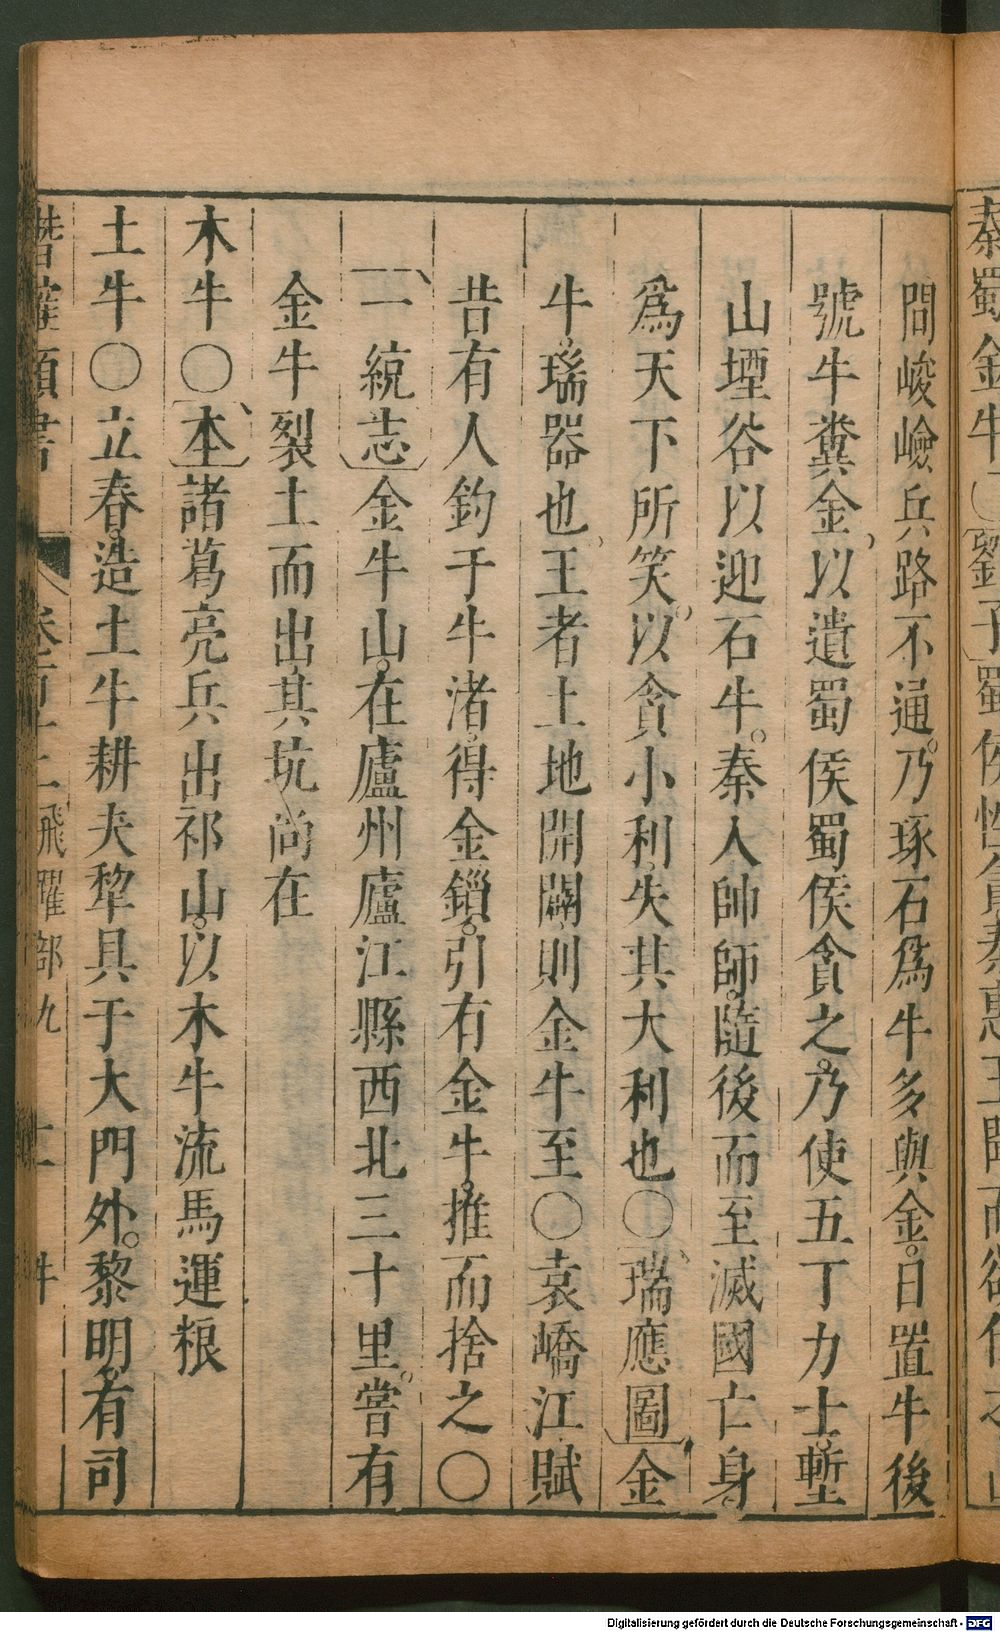 問峻嶮兵路不通。乃琢石爲牛多與金。日置牛後
號牛糞金，以遺蜀侯蜀侯貪之。乃使五丁力士。塹
山堙谷以迎石牛。秦人帥師。隨後而至滅國亡身。
爲天下所笑。以貪小利失其大利也〇瑞應圖金
牛瑞器也。王者土地開闢則金牛至〇袁嶠江賦
昔有人釣于牛渚。得金鎖。引有金牛。推而捨之〇
一統志金牛山。在廬州廬江縣西北三十里。嘗有
金牛裂土而出其坑尚在
木牛〇本諸葛亮兵出祁山。以木牛流馬運粮
土牛〇立春。造土牛耕夫犂具于大門外。黎明。有司
飛躍部九
Digitalisierung gefördert durch die Deutsche Forschungsgemeinschaft - DFG